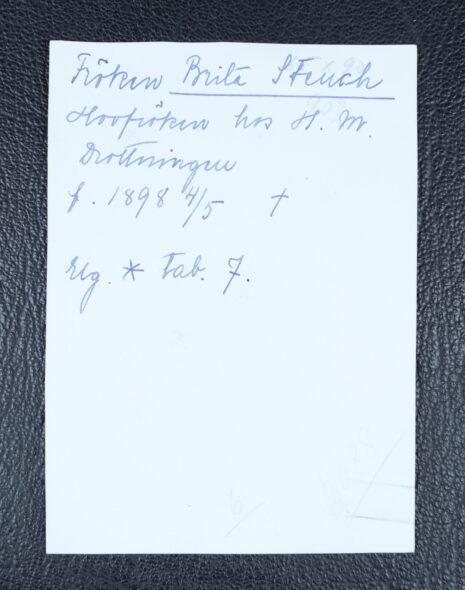 Fröken Brita Steuch
Hovfröken hos H. M.
Drottningen
f. 1898 4/5 †
Elg. * Tab. 7.
6/